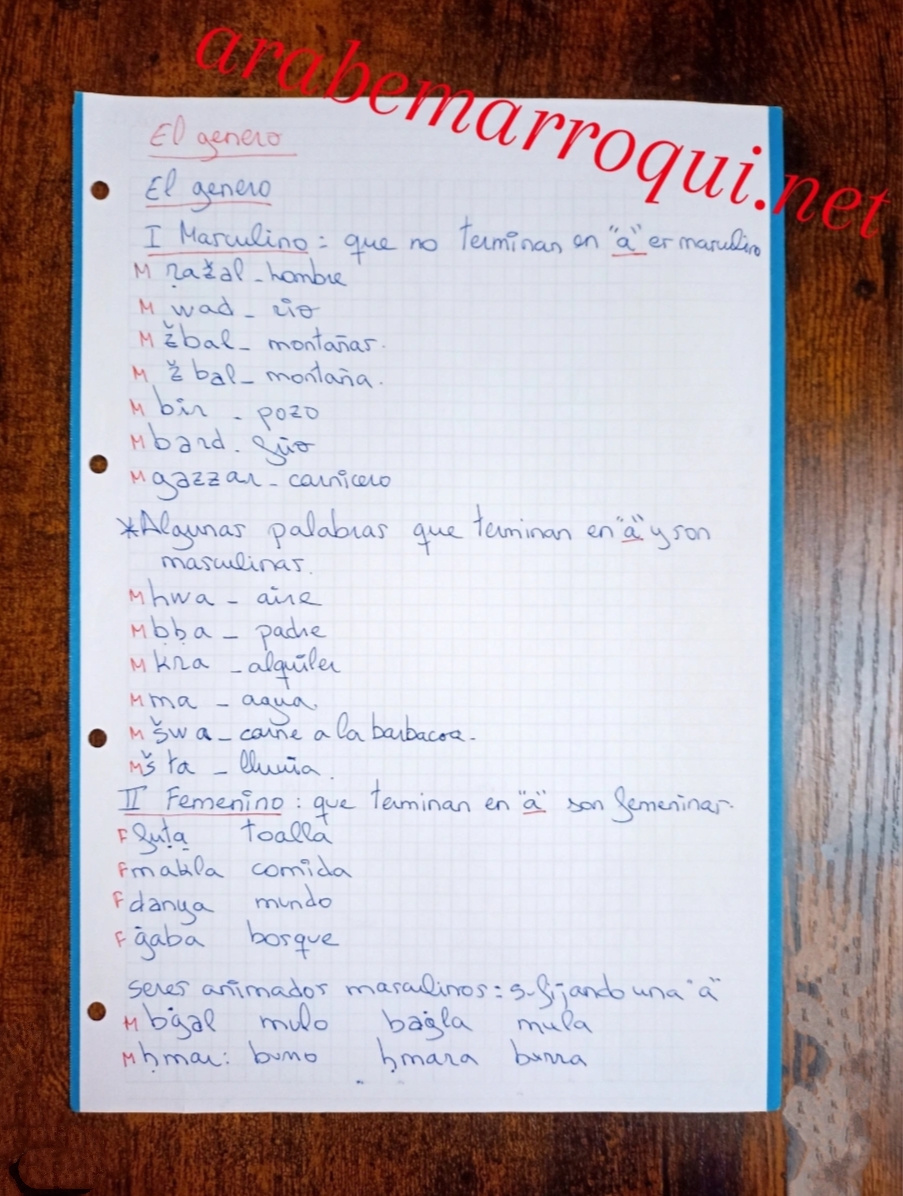 arabemarroqui.net
El genero
El genero
I Masculino: que no terminan en "a" es masculino
M ṛažal - hombre
M wad - rio
M žbal - montañas.
M žbal - montaña.
M bir - pozo
M bard. frio
M gazzar - carnicero
*Algunas palabras que terminan en "a" y son
masculinas.
M hwa - aire
M ḅḅa - padre
M kra - alquiler
M ma - agua.
M šwa - carne a la barbacoa.
M šta - lluvia.
II Femenino: que terminan en "a" son femeninas.
F fuṭa toalla
F makla comida
F danya mundo
F ġaba bosque
seres animados masculinos: sufijando una "a"
M bġal mulo baġla mula
M ḥmar: burro ḥmara burra